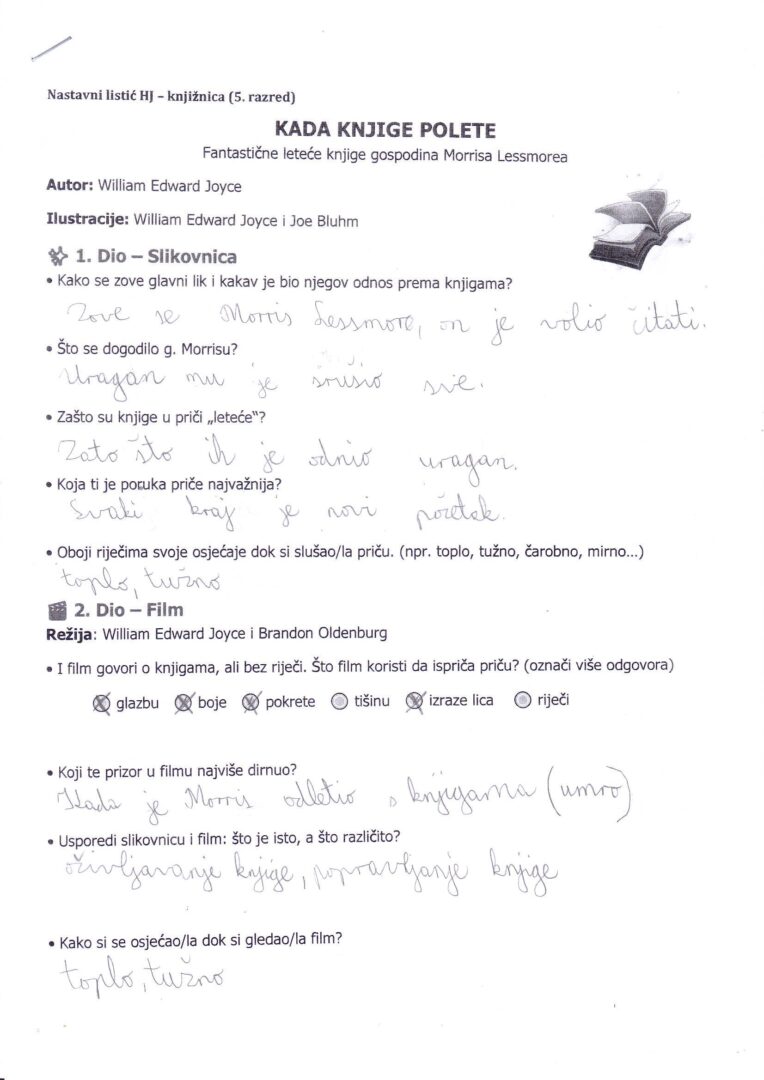 Nastavni listić HJ – knjižnica (5. razred)
KADA KNJIGE POLETE
Fantastične leteće knjige gospodina Morrisa Lessmorea
Autor: William Edward Joyce
Ilustracije: William Edward Joyce i Joe Bluhm
1. Dio – Slikovnica
• Kako se zove glavni lik i kakav je bio njegov odnos prema knjigama?
Zove se Morris Lessmore, on je volio čitati.
• Što se dogodilo g. Morrisu?
Uragan mu je srušio sve.
• Zašto su knjige u priči „leteće“?
Zato što ih je odnio uragan.
• Koja ti je poruka priče najvažnija?
Svaki kraj je novi početak.
• Oboji riječima svoje osjećaje dok si slušao/la priču. (npr. toplo, tužno, čarobno, mirno...)
toplo, tužno
2. Dio – Film
Režija: William Edward Joyce i Brandon Oldenburg
• I film govori o knjigama, ali bez riječi. Što film koristi da ispriča priču? (označi više odgovora)
glazbu boje pokrete tišinu izraze lica riječi
• Koji te prizor u filmu najviše dirnuo?
Kada je Morris odletio s knjigama (umro)
• Usporedi slikovnicu i film: što je isto, a što različito?
oživljavanje knjige, popravljanje knjige
• Kako si se osjećao/la dok si gledao/la film?
toplo, tužno